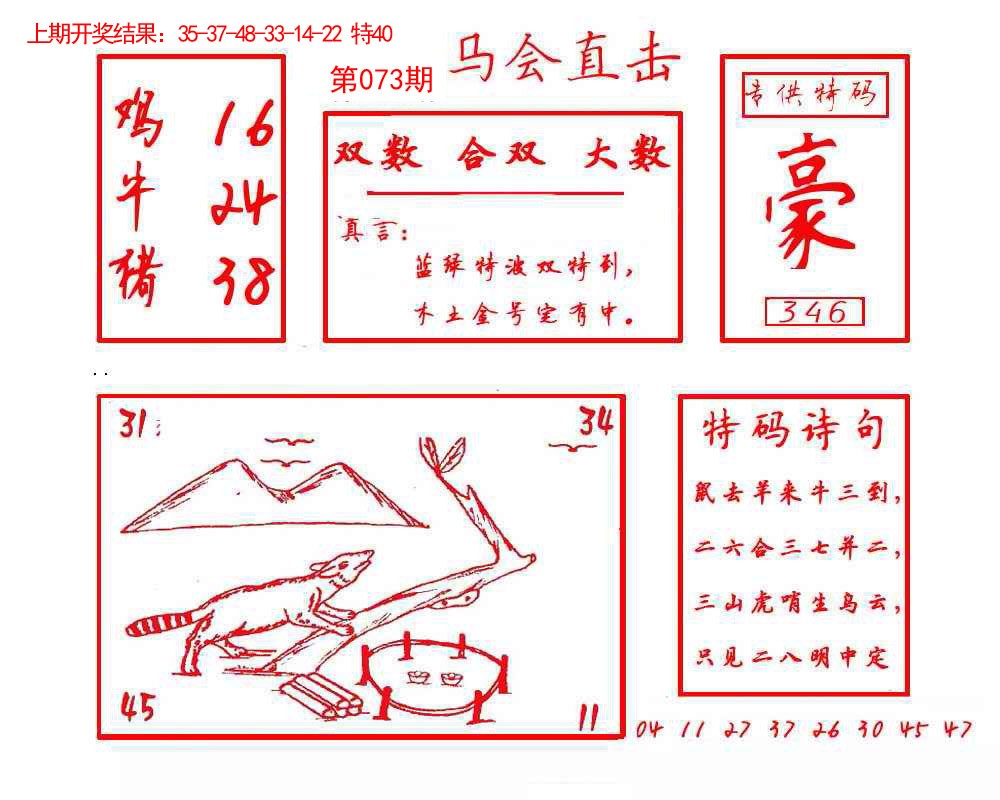 上期开奖结果：35-37-48-33-14-22 特40
第073期
马会直击
鸡 16
牛 24
猪 38
双数 合双 大数
真言：
蓝绿特波双特到，
木土金号定有中。
专供特码
豪
346
31
34
45
11
特码诗句
鼠去羊来牛三到，
二六合三七并二，
三山虎哨生乌云，
只见二八明中定
04 11 27 37 26 30 45 47